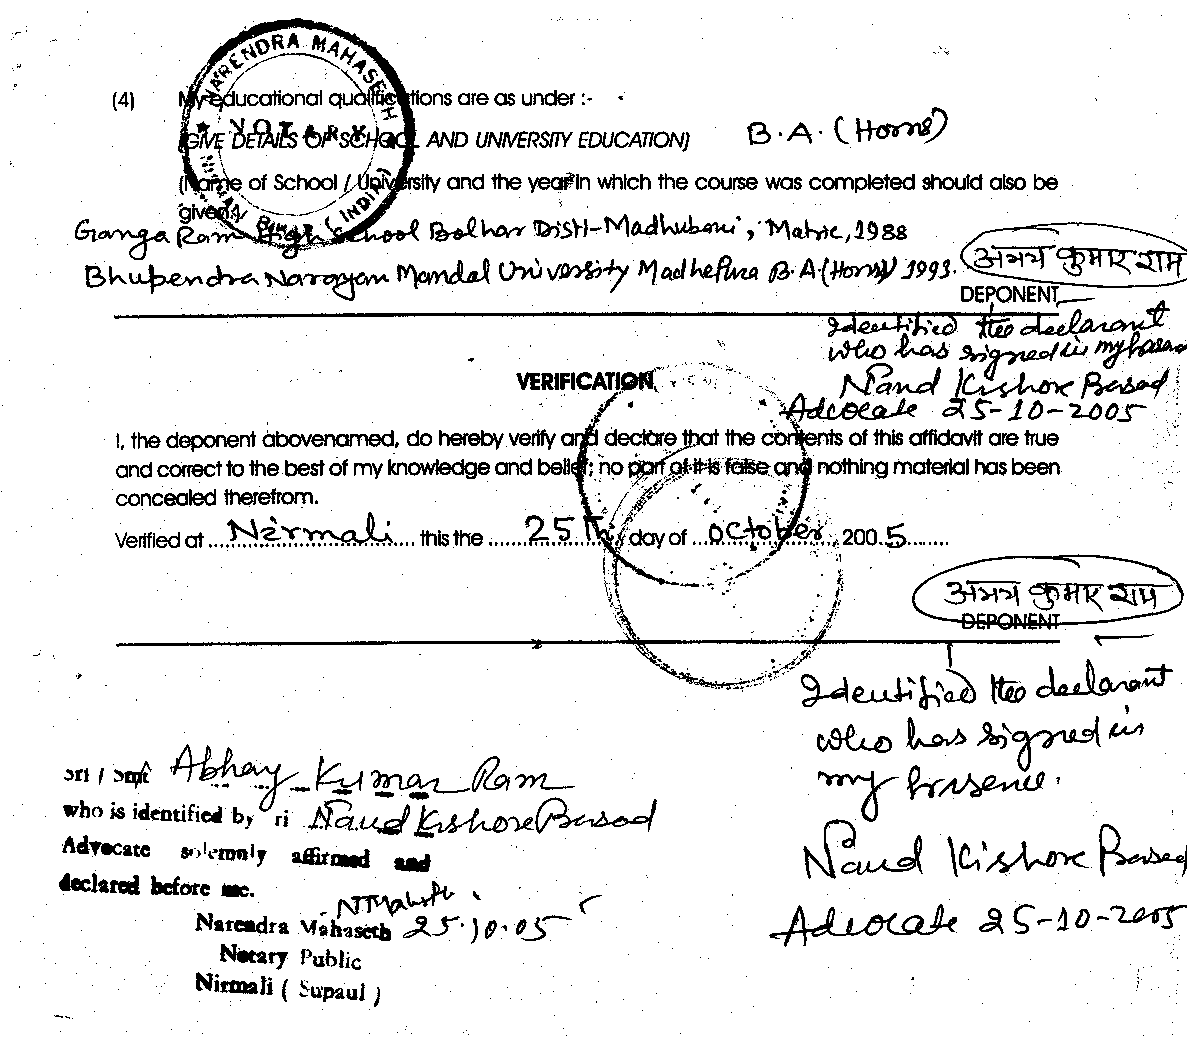 NARENDRA MAHASETH
NOTARY
(INDIA)
(4) My educational qualifications are as under :-
(GIVE DETAILS OF SCHOOL AND UNIVERSITY EDUCATION) B.A. (Horns)
(Name of School / University and the year in which the course was completed should also be
given)
Ganga Ram High School Bolhar Distt-Madhubani, Matric, 1988
Bhupendra Narayan Mandal University Madhepura B.A (Horns) 1993.
अभय कुमार राम
DEPONENT
Identified the declarant
who has signed in my
Nand Kishore Prasad
Advocate 25-10-2005
VERIFICATION
I, the deponent abovenamed, do hereby verify and declare that the contents of this affidavit are true
and correct to the best of my knowledge and belief; no part of it is false and nothing material has been
concealed therefrom.
Verified at Nirmali this the 25th day of October, 2005
अभय कुमार राम
DEPONENT
Identified the declarant
who has signed in
my presence.
Nand Kishore Prasad
Advocate 25-10-2005
Sri / Smt Abhay Kumar Ram
who is identified by ri Nand Kishore Prasad
Advocate solemnly affirmed and
declared before me.
Narendra Mahaseth 25.10.05
Notary Public
Nirmali ( Supaul )